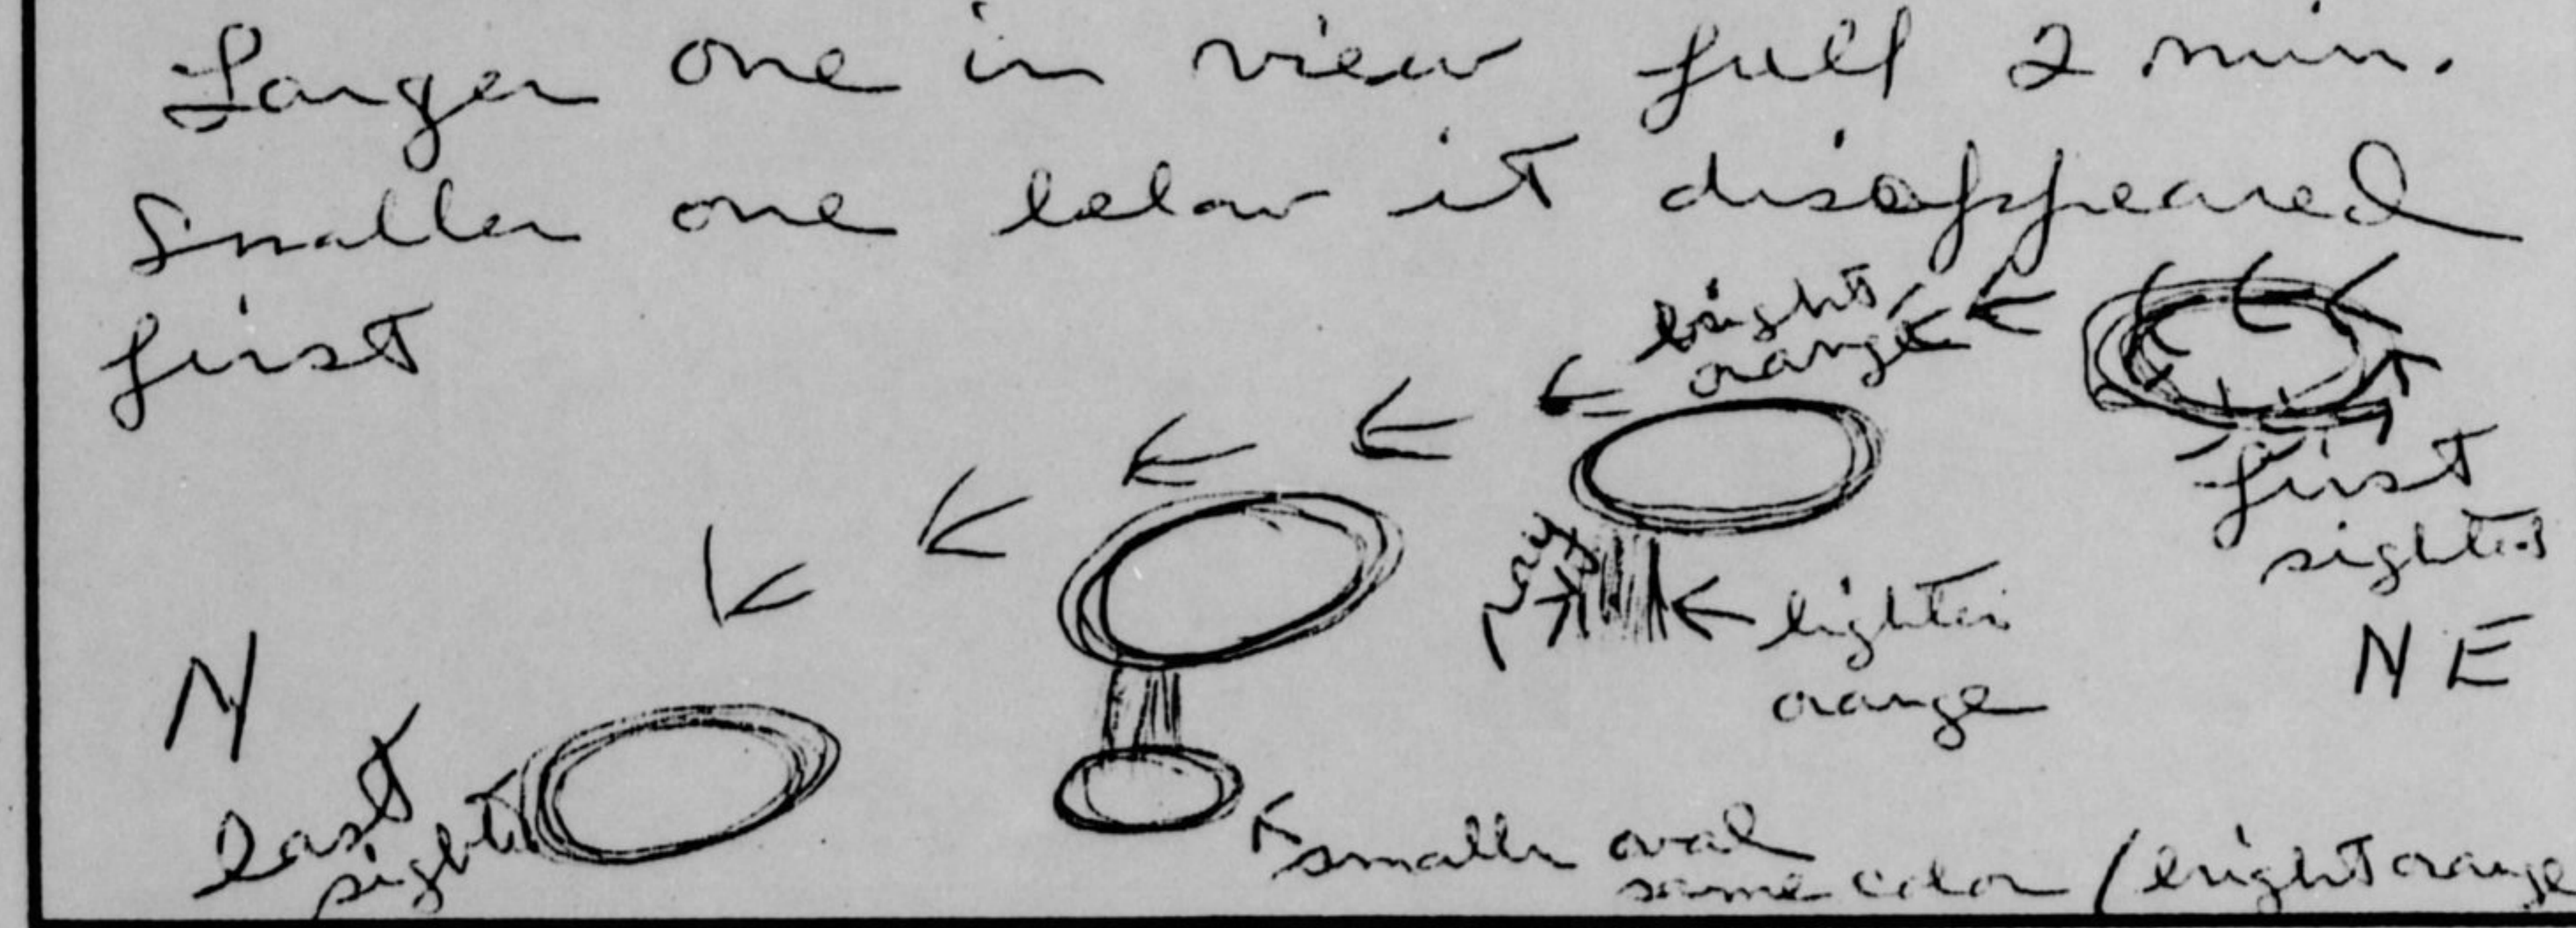 Larger one in view full 2 min.
Smaller one below it disappeared
first
bright
orange
first
sighted
ray
lighter
orange
N E
N
last
sight
smaller oval
same color (bright orange